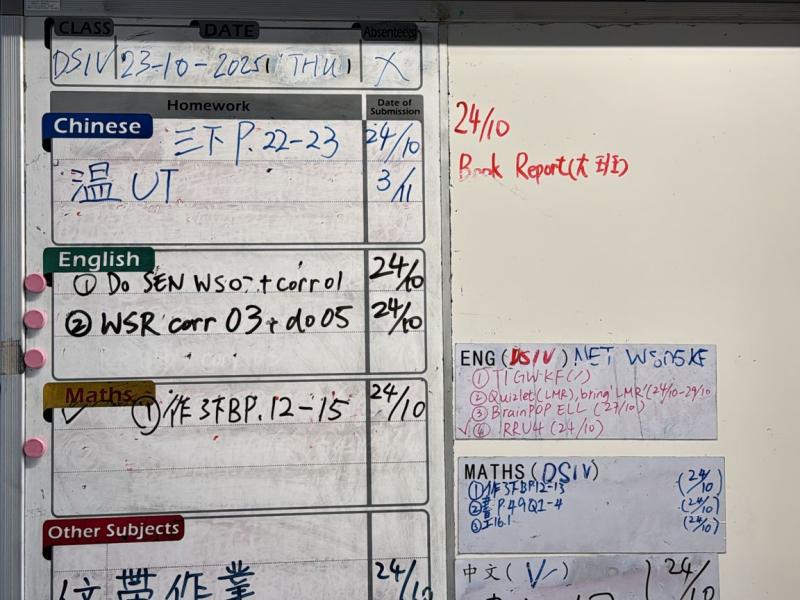 CLASS DATE Absentees
DSIV 23-10-2025 THU X
Homework Date of Submission
Chinese
三下 P.22-23 24/10
温 UT 3/11
English
① Do SEN WS07+corr01 24/10
② WSR corr 03+do05 24/10
Maths
① 作3下B P.12-15 24/10
Other Subjects
帶作業 24/10
24/10
Book Report
ENG (DSIV) NET
① T1 GWKF
② Quizlet (LMR), bring LMR (24/10-29/10
③ BrainPOP ELL (27/10)
④ RRU4 (24/10)
MATHS (DSIV)
① 作3下BP.12-13 (24/10)
② 書 P.49Q1-4 (24/10)
③ 工16.1 (24/10)
中文( 24/10